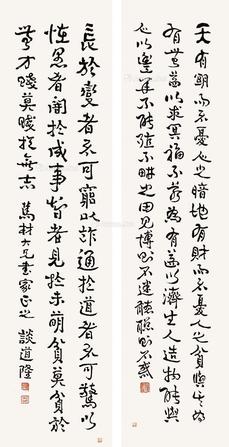 天有明而不憂人之暗地有財而不憂人之貧與其為
無益以求冥福不若為有益以濟生人造物能與
人以豐年不能強不畊之田見博則不迷聽聰則不惑
長於變者不可窮以詐通於道者不可驚以
怪愚者闇於成事智者見於未萌貧莫貧於
無才賤莫賤於無志 材大兄書家正之 談道隆